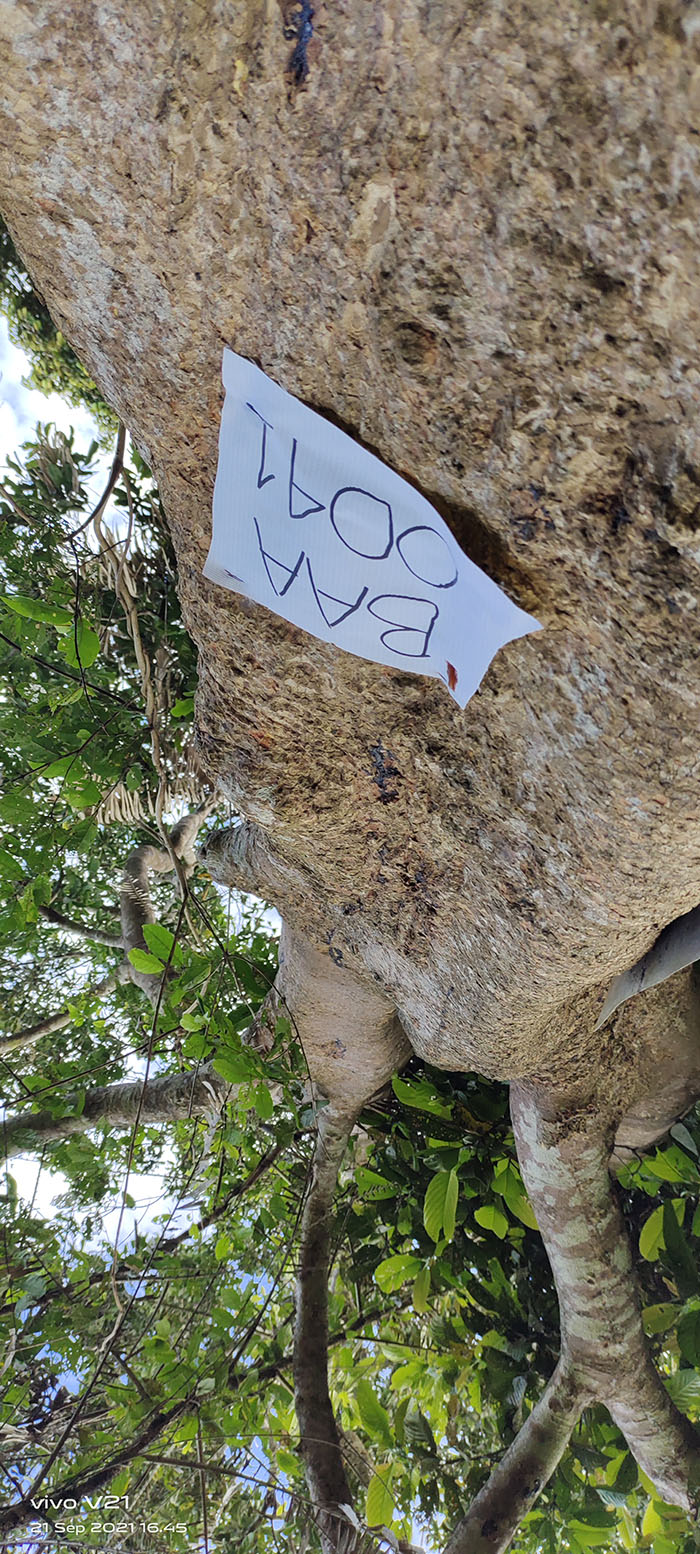 BAA
0091
vivo V21
21 Sep 2021 16.45